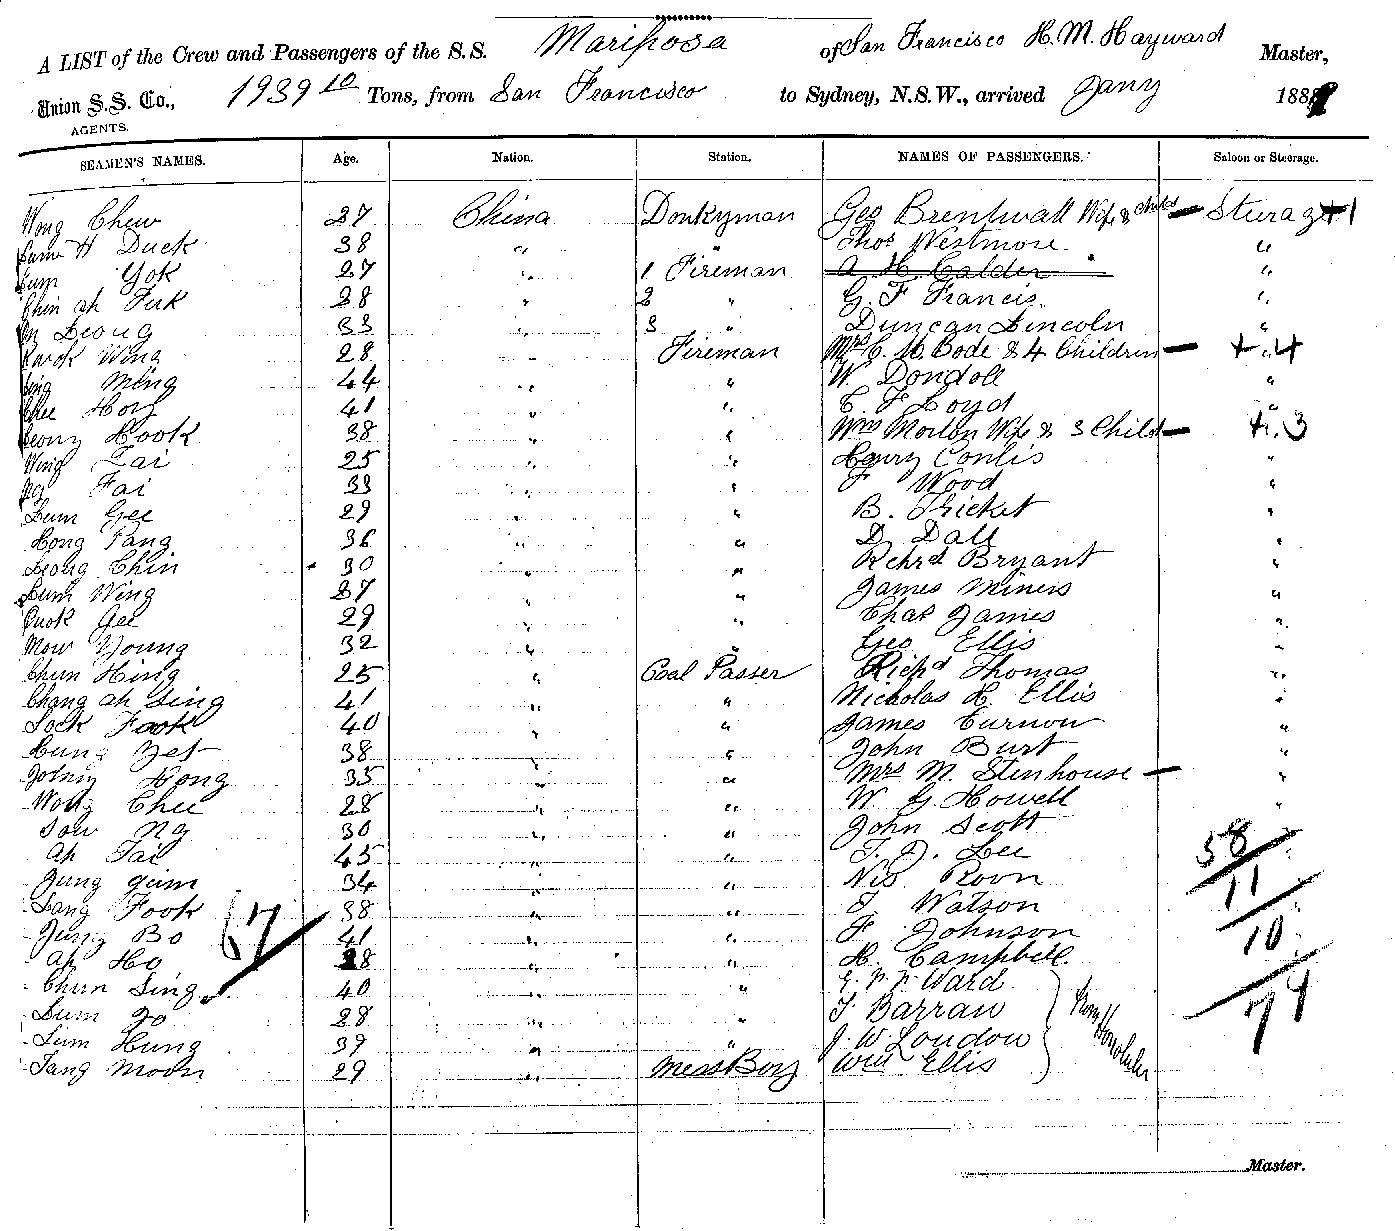 A LIST of the Crew and Passengers of the S.S. Mariposa of San Francisco H. M. Hayward Master,
Union S.S. Co., 1939 10 Tons, from San Francisco to Sydney, N.S.W., arrived Jany 188
AGENTS.
SEAMEN'S NAMES. Age. Nation. Station. NAMES OF PASSENGERS. Saloon or Steerage.
Wong Chew 27 China Donkyman Geo Brentwall Wife & child — Sturage +1
H Duck 38 " " Thos Westmore "
Yok 27 " 1 Fireman A H Calder "
Chin ah Fuk 28 " 2 " G. F Francis "
Leong 33 " 3 " Duncan Lincoln "
Wing 28 " Fireman Mrs C. M. Bode & 4 Children — + " 4
Ming 44 " " W. Dondoll "
Chee Hoy 41 " " C. F Loyd "
Leong Hook 38 " " Wm Morton Wife & 3 Child — + " 3
Wing Tai 25 " " Henry Conlis "
Ng Fai 33 " " F Wood "
Lum Gee 29 " " B. Tricket "
Hong Tang 36 " " D. Dall "
Leong Chin 30 " " Richrd Bryant "
Lum Wing 27 " " James Miners "
Quok Gee 29 " " Chas James "
Mow Young 32 " " Geo Ellis "
Chun Hing 25 " Coal Passer Richd Thomas "
Chang ah Sing 41 " " Nicholas H. Ellis "
Lock Fook 40 " " James Curnow "
Hung Yet 38 " " John Burt "
Johny Hong 35 " " Mrs M. Stenhouse — "
Wong Chee 28 " " W G. Howell "
Sow Ng 30 " " John Scott
Ah Tai 45 " " T. J. Lee 58
Jung Gim 34 " " Nis Roon 11
Sang Fook 38 " " T Watson
67 Jung Bo 41 " " F Johnson 10
Ah Ho 28 " " H. Campbell
Chun Sing 40 " " Ward
Lum Go 28 " " T Barran From Honolulu 79
Lum Hung 39 " " J. W Loudon
Tang Moon 29 " Mess Boy Wm Ellis
Master.